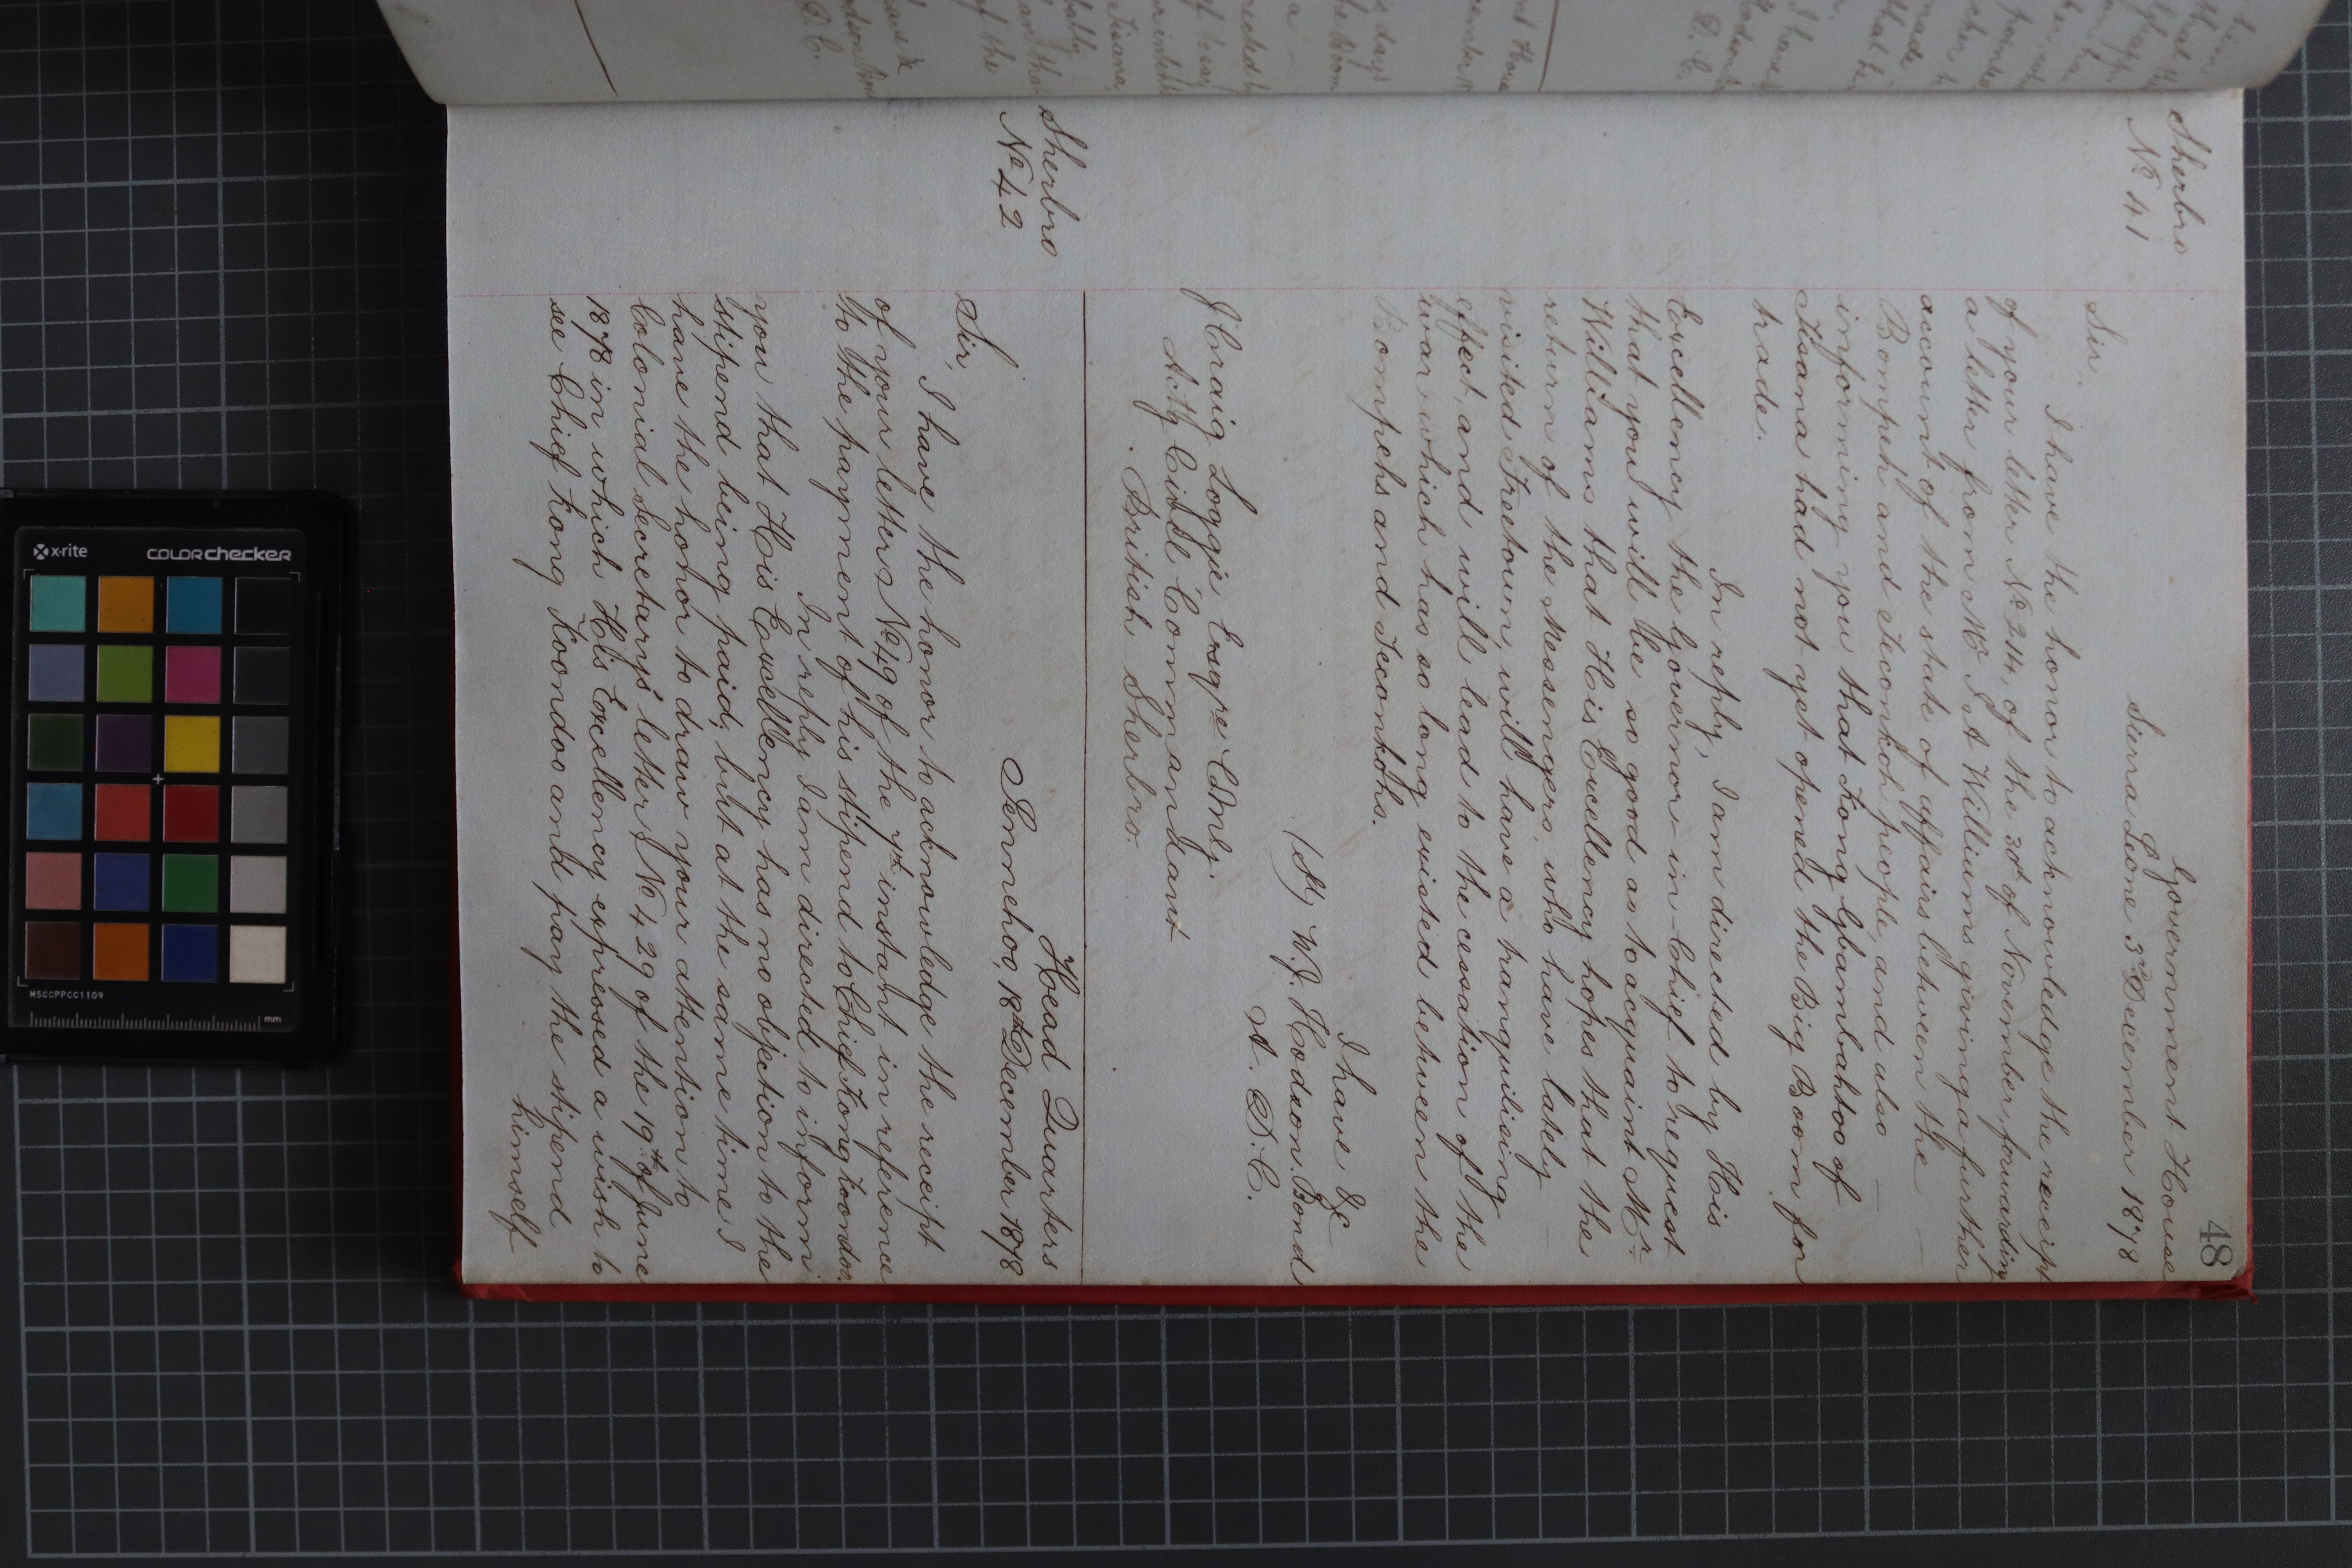 48
Sherbro
No. 41
Government House
Sierra Leone 3rd December 1878
Sir,
I have the honor to acknowledge the receipt
of your letter No. 214, of the 30th of November, forwarding
a letter from Mr. J. A Williams giving a further
account of the state of affairs between the
Bompeh and Teconkoh people, and also
informing you that Kong Gbambahtoo of
Tisana had not yet opened the Big Boom for
trade.
In reply, I am directed by His
Excellency the Governor-in-Chief to request
that you will be so good as to acquaint Mr.
Williams that His Excellency hopes that the
return of the Messengers, who have lately
visited Freetown, will have a tranquilising
effect, and will lead to the cessation of the
war which has so long existed between the
Bompehs and Teconkohs.
I have &c
W. J. Hodson Bond
A. D. C.
J Craig Loggie Esqre C.M.G.
Actg Civil Commandant
British Sherbro.
Sherbro
No. 42
Head Quarters
Sennehoo, 18th December 1878
Sir,
I have the honor to acknowledge the receipt
of your letters No. 49 of the 7th instant in reference
to the payment of his stipend to Chief Kong Koondoo.
In reply I am directed to inform
you that His Excellency has no objection to the
stipend being paid; but at the same time I
have the honor to draw your attention to
Colonial Secretary's letter No. 429 of the 19th of June
1878 in which His Excellency expressed a wish to
see Chief Kong Koondoo and pay the stipend
himself
x-rite
COLORchecker
MSCCPPCC1109
mm